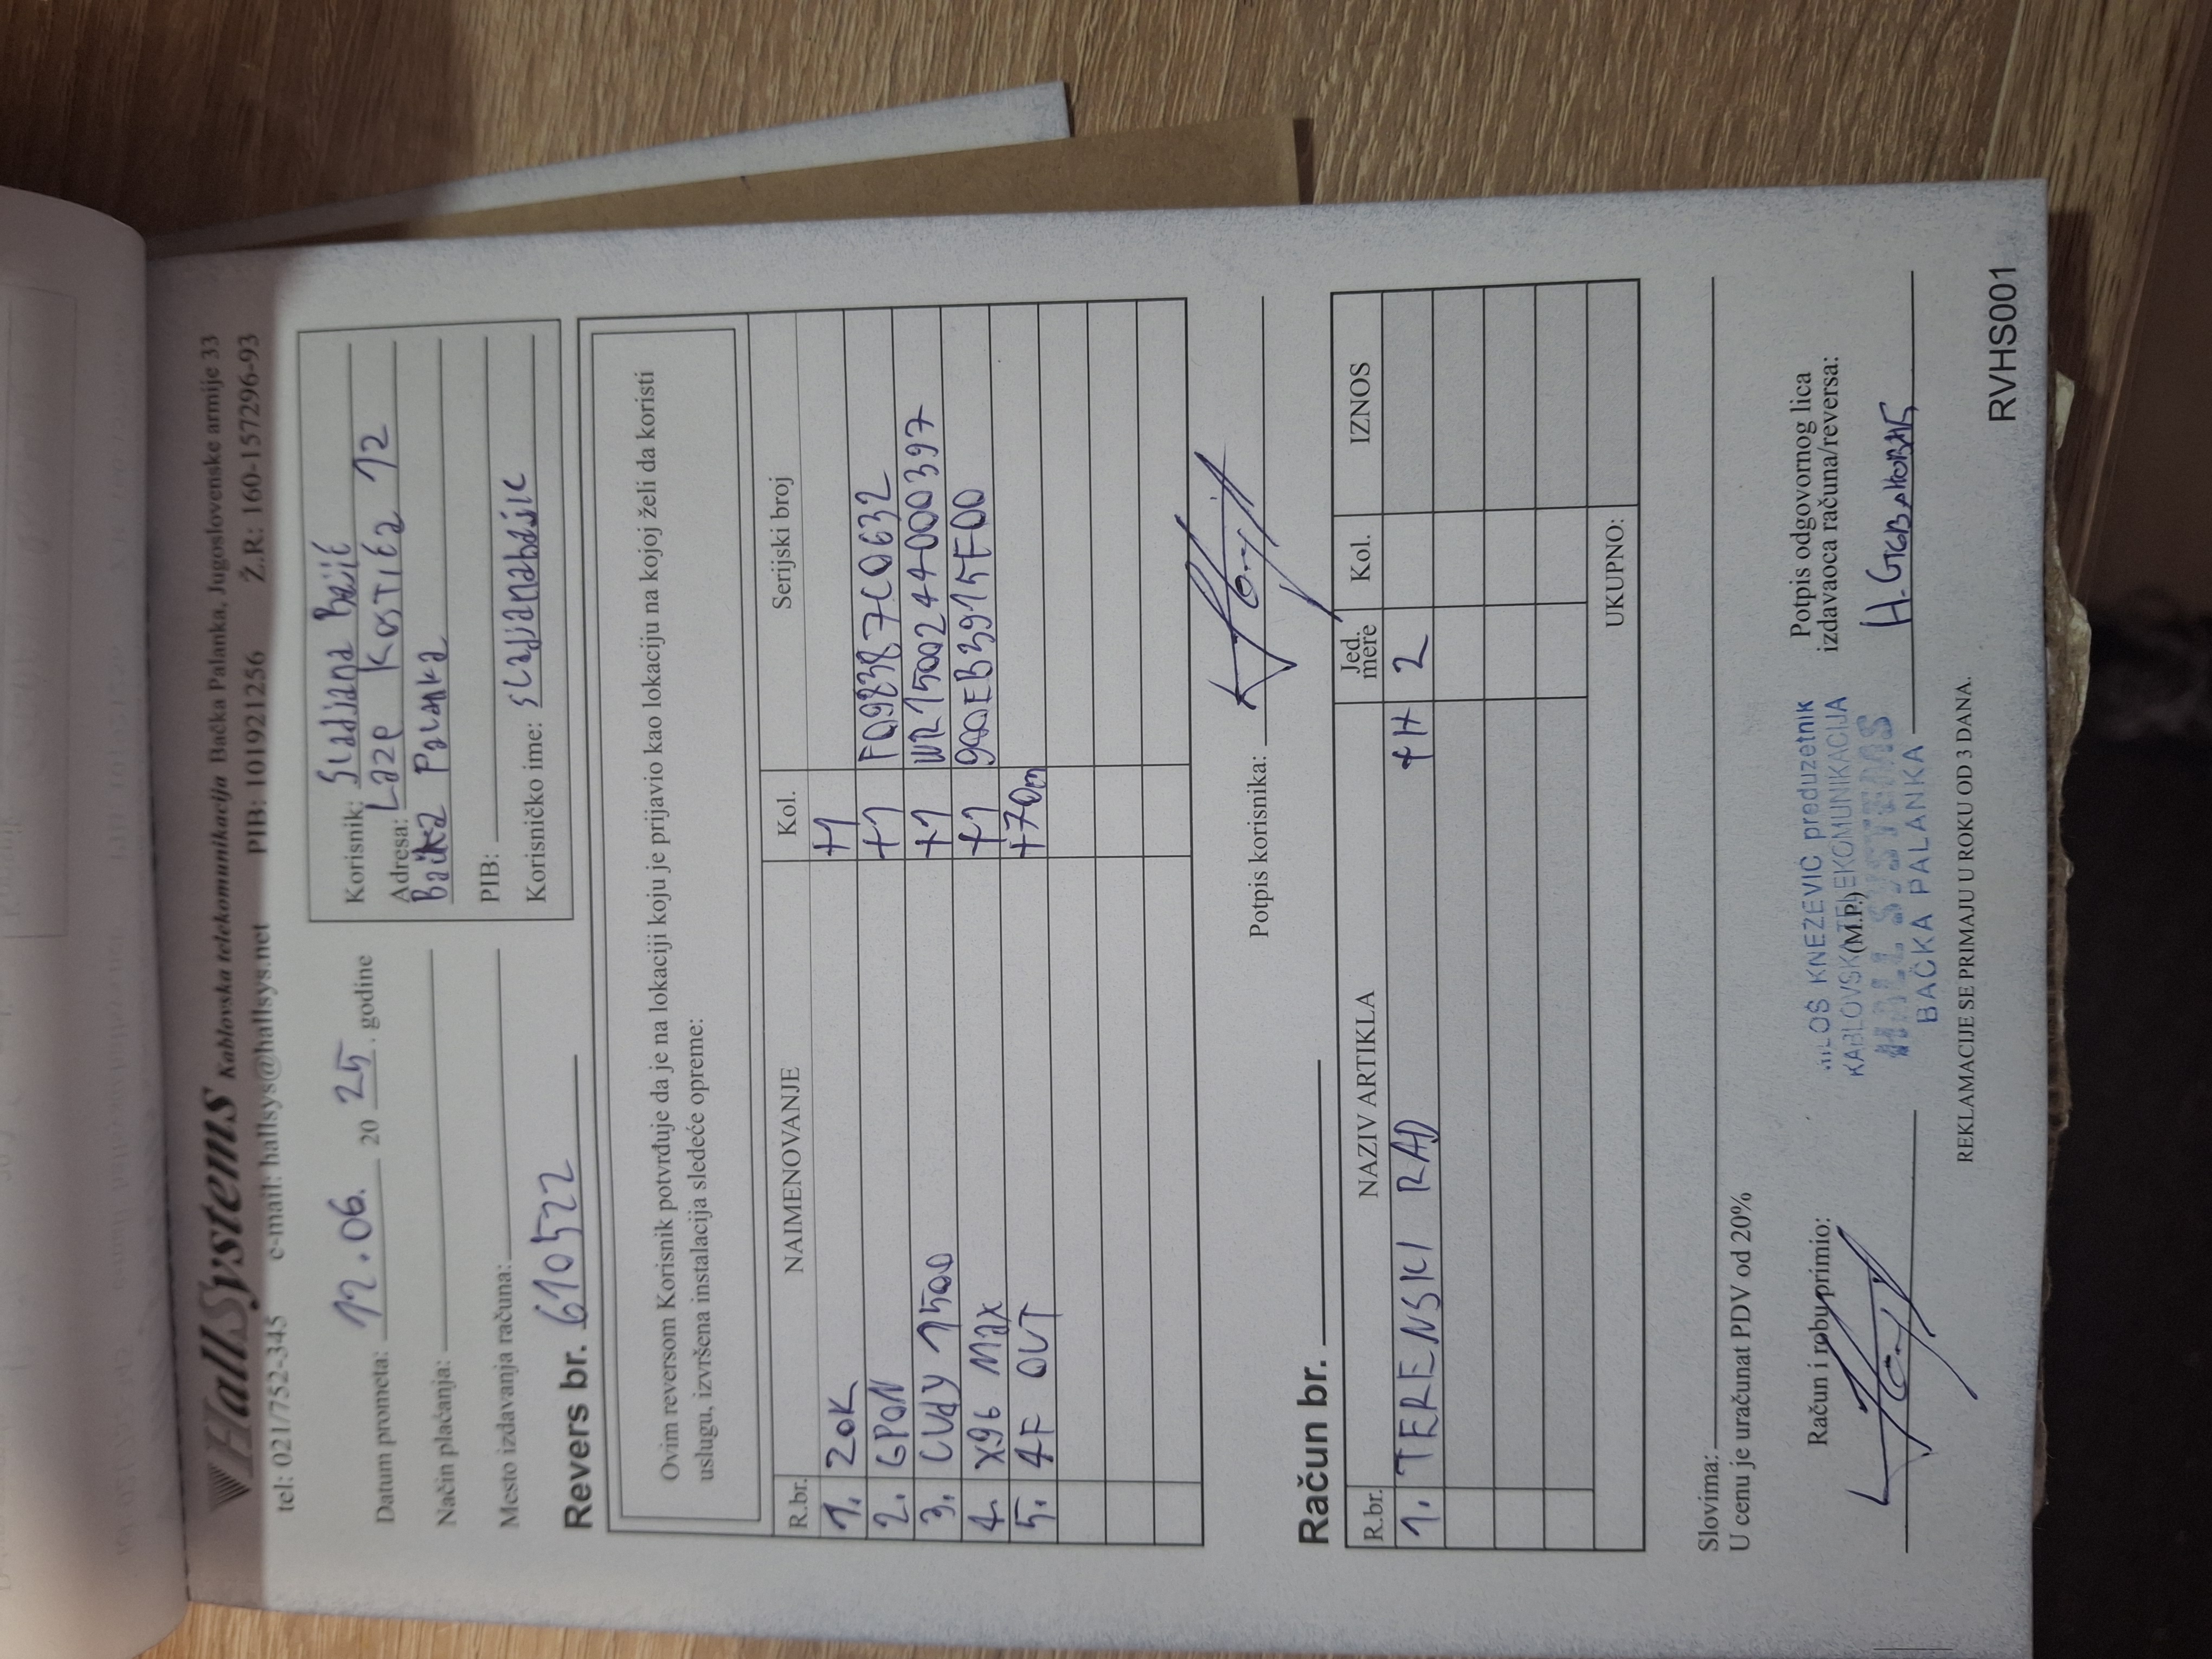 HallSystems Kablovska telekomunikacija Bačka Palanka, Jugoslovenske armije 33
tel: 021/752-345 e-mail: hallsys@hallsys.net PIB: 101921256 Ž.R.: 160-157296-93
Datum prometa: 12.06. 20 25. godine
Način plaćanja:
Mesto izdavanja računa:
Korisnik: Slađana Bajić
Adresa: Laze Kostića 12
Bačka Palanka
PIB:
Korisničko ime: sladjanabajic
Revers br. 610522
Ovim reversom Korisnik potvrđuje da je na lokaciji koju je prijavio kao lokaciju na kojoj želi da koristi
uslugu, izvršena instalacija sledeće opreme:
R.br. NAIMENOVANJE Kol. Serijski broj
1. ZOK +1
2. GPON +1 FQ98387C0632
3. Cudy 1500 +1 WR1500244000397
4. X96 Max +1 900EB3915F00
5. 4F OUT +70m
Potpis korisnika:
Račun br.
R.br. NAZIV ARTIKLA Jed. mere Kol. IZNOS
1. TERENSKI RAD +H 2
UKUPNO:
Slovima:
U cenu je uračunat PDV od 20%
Račun i robu primio:
(M.P.)
Potpis odgovornog lica
izdavaoca računa/reversa:
LOŠ KNEZEVIĆ preduzetnik
KABLOVSKA TELEKOMUNIKACIJA
HALL SYSTEMS
BAČKA PALANKA
REKLAMACIJE SE PRIMAJU U ROKU OD 3 DANA.
RVHS001